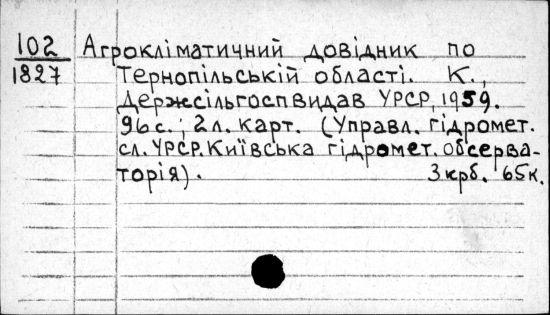 102 Агрокліматичний довідник по
1827 Тернопільській області. К.,
Держсільгоспвидав УРСР, 1959.
96 с.; 2 л. карт. (Управл. гідромет.
сл. УРСР. Київська гідромет. обсерва-
торія). 3 крб. 65 к.